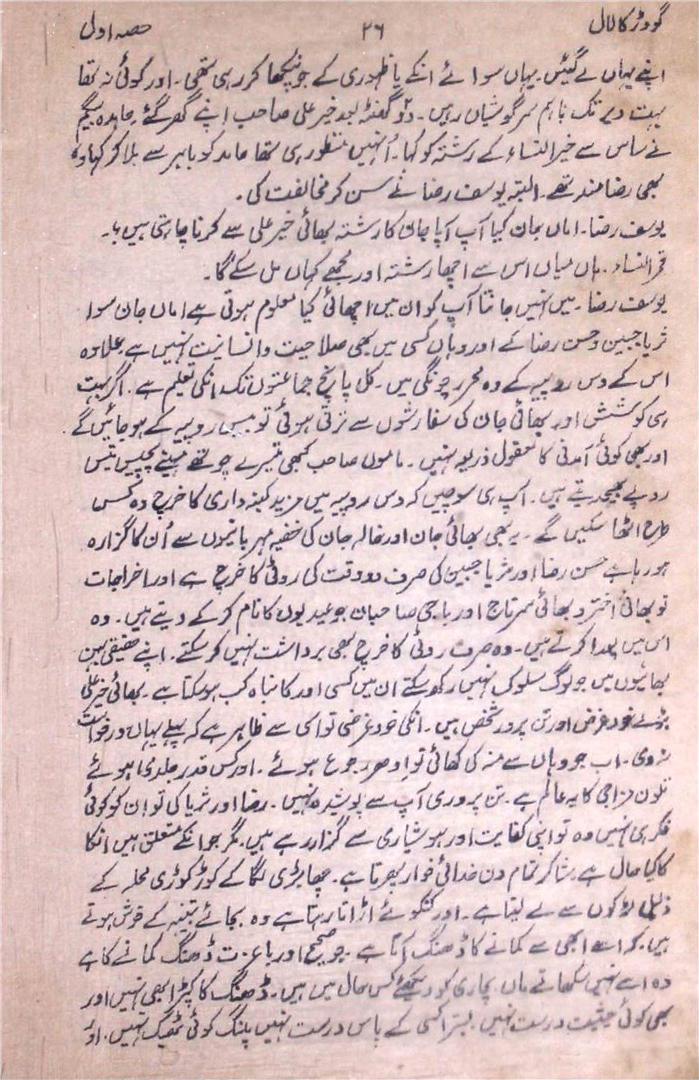 گودڑ کا لال ۲۶ حصہ اول
اپنے یہاں لے گئیں۔ یہاں سوائے انکے یا ظہوری کے جو پنکھا کر رہی تھی۔ اور کوئی نہ تھا
بہت دیر تک باہم سرگوشیاں رہیں۔ دو گھنٹہ بعد خیر علی صاحب اپنے گھر گئے۔ عابدہ بیگم
نے ساس سے خیر النساء کے رشتہ کو کہا۔ اُنھیں منظور ہی تھا حامد کو باہر سے بلا کر کہا وہ
بھی رضامند تھے۔ البتہ یوسف رضا نے سن کر مخالفت کی۔
یوسف رضا۔ اماں جان کیا آپ آپا جان کا رشتہ بھائی خیر علی سے کرنا چاہتی ہیں؟۔
قمر النساء۔ ہاں میاں اس سے اچھا رشتہ اور مجھے کہاں مل سکے گا۔
یوسف رضا۔ میں نہیں جانتا آپ کو ان میں اچھائی کیا معلوم ہوتی ہے اماں جان سوا
ثریا جبین و حسن رضا کے اور وہاں کسی میں بھی صلاحیت و انسانیت نہیں ہے علاوہ
اس کے دس روپیہ کے وہ محرر چونگی ہیں۔ کل پانچ جماعتوں تک انکی تعلیم ہے۔ اگر بہت
ہی کوشش اور بھائی جان کی سفارشوں سے ترقی ہوئی تو بیس روپیہ کے ہو جائیں گے
اور بھی کوئی آمدنی کا معقول ذریعہ نہیں۔ ماموں صاحب کبھی تیسرے چوتھے مہینے پچیس تیس
روپے بھیجدیتے ہیں۔ آپ ہی سوچیں کہ دس روپیہ میں مزید کنبہ داری کا خرچ وہ کس
طرح اٹھا سکیں گے۔ یہ بھی بھائی جان اور خالہ جان کی خفیہ مہربانیوں سے اُن کا گزارہ
ہو رہا ہے حسن رضا اور ثریا جبین کی صرف دو وقت کی روٹی کا خرچ ہے اور اخراجات
تو بھائی اختر و بھائی سرتاج اور باجی صاحبان جو عیدیوں کا نام کر کے دیتے ہیں۔ وہ
اس میں پورا کرتے ہیں۔ وہ صرف روٹی کا خرچ بھی برداشت نہیں کر سکتے۔ اپنے حقیقی بہن
بھائیوں میں جو لوگ سلوک نہیں رکھ سکتے ان میں کسی اور کا نباہ کب ہو سکتا ہے۔ بھائی خیر علی
بڑے خود غرض اور تن پرور شخص ہیں۔ انکی خود غرضی تو اسی سے ظاہر ہے کہ پہلے یہاں درخواست
نہ دی۔ اب جو وہاں سے منہ کی کھائی تو ادھر رجوع ہوئے۔ اور کس قدر جلدی ہوئے
تلون مزاجی کا یہ عالم ہے۔ تن پروری آپ سے پوشیدہ نہیں۔ رضا اور ثریا کی تو ان کو کوئی
فکر ہی نہیں وہ تو اپنی کفایت اور ہوشیاری سے گزار رہے ہیں۔ مگر جو انکے متعلق ہیں انکا
کا کیا حال ہے۔ شاکر تمام دن خدائی خوار پھرتا ہے۔ چھابڑی لگا کے کوڑ کوڑی محلہ کے
ذلیل لڑکوں سے لے لیتا ہے۔ اور کنکوئے اڑاتا رہتا ہے وہ بجائے تنبیہ کے خوش ہوتے
ہیں۔ کہ اسے ابھی سے کمانے کا ڈھنگ آتا ہے۔ جو صحیح اور باعزت ڈھنگ کمانے کا ہے
وہ اسے نہیں سکھاتے ماں بچاری کو دیکھئے کس حال میں ہیں۔ ڈھنگ کا کپڑا بھی نہیں اور
بھی کوئی حیثیت درست نہیں۔ بستر کسی کے پاس درست نہیں پلنگ کوئی ٹھیک نہیں۔ اور